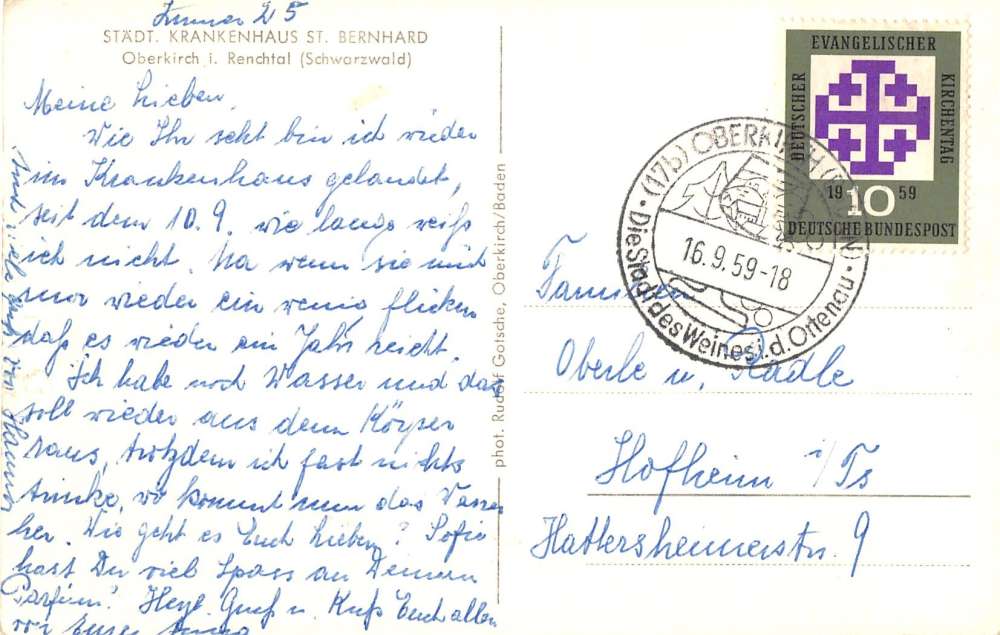 Zimmer 25
STÄDT. KRANKENHAUS ST. BERNHARD
Oberkirch i. Renchtal (Schwarzwald)
Meine Lieben.
Wie Ihr seht bin ich wieder
im Krankenhaus gelandet,
seit dem 10.9. wie lange weiß
ich nicht. Na wenn sie mich
nur wieder ein wenig flicken
daß es wieder ein Jahr reicht.
Ich habe noch Wasser und das
soll wieder aus dem Körper
raus, trotzdem ich fast nichts
trinke, wo kommt nun das Wasser
her. Wie geht es Euch Lieben? Sofie
hast Du viel Spass an Deinem
Parfüm? Herzl. Gruß u. Kuß Euch allen
Eure Anna
Auch viele von
phot. Rudolf Gotsche, Oberkirch/Baden
DEUTSCHER
EVANGELISCHER
KIRCHENTAG
19 10 59
DEUTSCHE BUNDESPOST
(17b) OBERKIRCH (BADEN)
16.9.59-18
Die Stadt des Weines i. d. Ortenau
Familien
Oberle u. Rädle
Hofheim i/Ts
Hattersheimerstr. 9